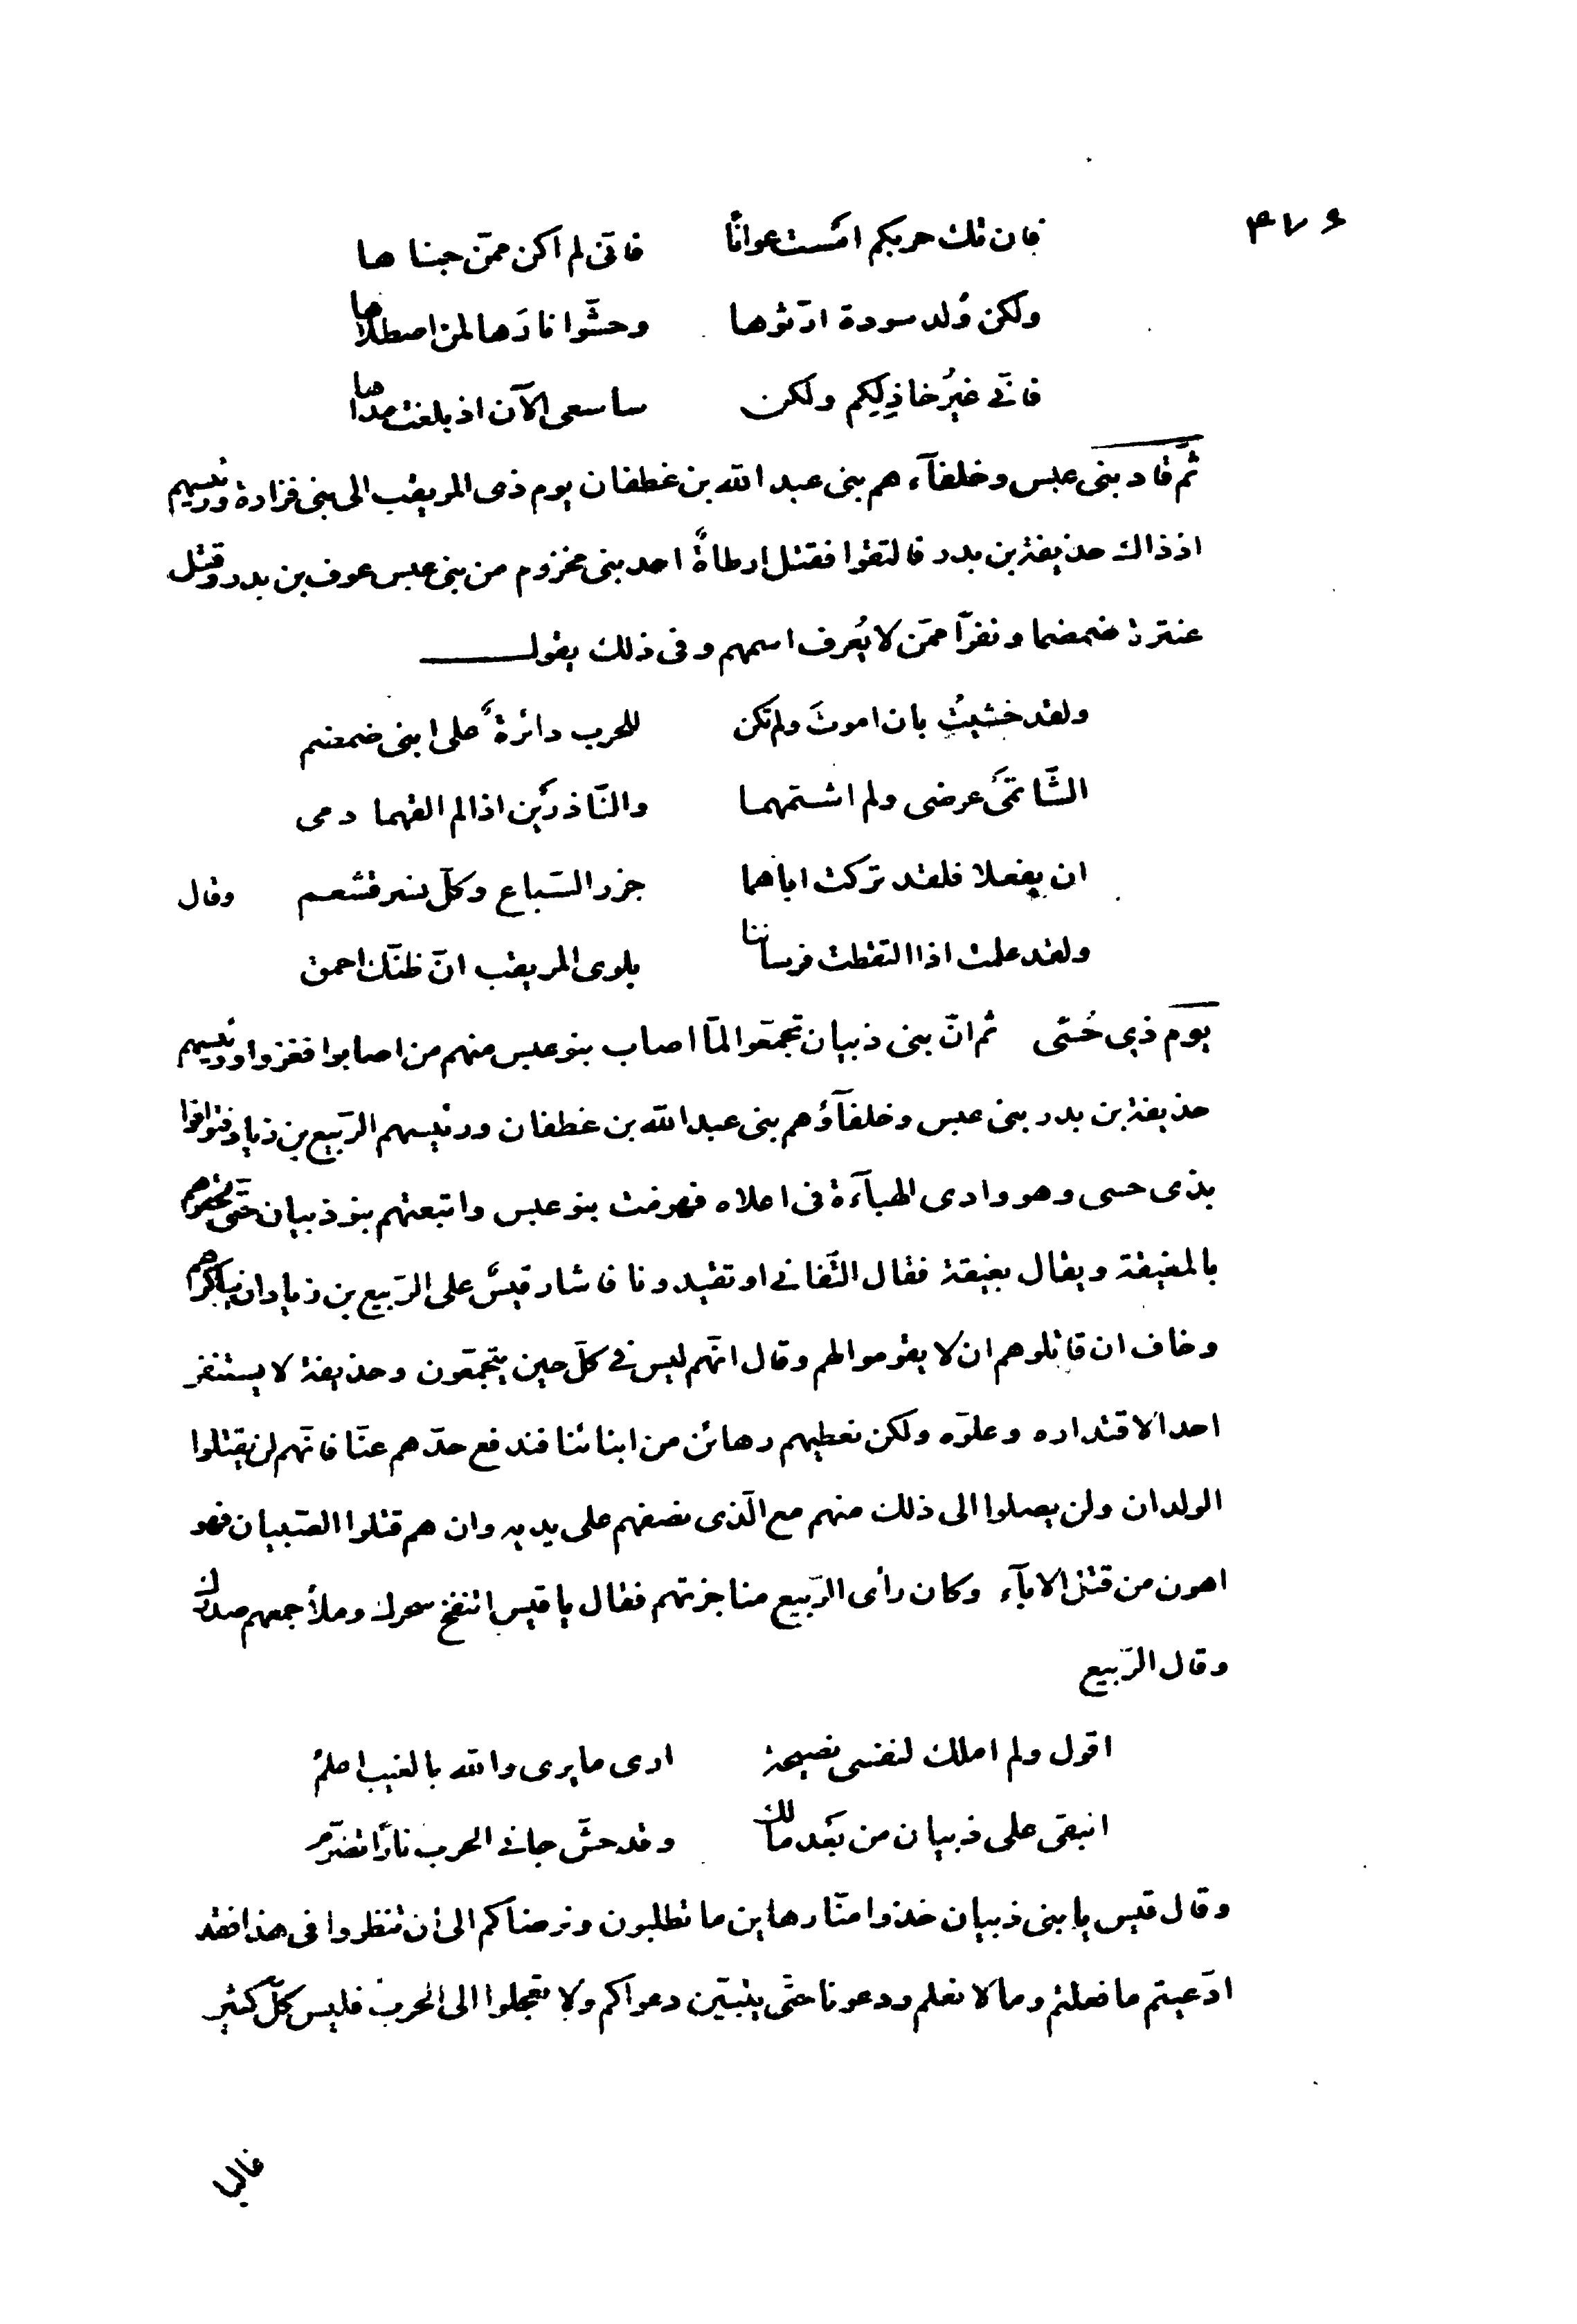 ٤٧٦
فان تك حربكم امست عوانًا فانّى لم اكن ممّن جناها
ولكن وُلد سودة ارّثوها وحشّوا نارَها لمن اصطلاها
فانّى غيرُ خاذِلِكم ولكن سأسعى الآن اذ بلغت مداها
ثمّ قاد بنى عبس وحلفآءهم بنى عبد الله بن غطفان يوم ذى المريقب الى بنى فزارة ورئيسهم
اذ ذاك حذيفة بن بدر فالتقوا فقتل ارطاةُ احد بنى مخزوم من بنى عبس عوف بن بدر وقتل
عنترة ضمضما ونفرًا ممّن لا يُعرف اسمهم وفى ذلك يقول
ولقد خشيتُ بان اموتَ ولم تكن للحرب دائرةٌ على ابنى ضمضم
الشّاتمَىْ عرضى ولم اشتمهما والنّاذرَيْن اذا لم القهما دمى
ان يفعلا فلقد تركت اباهما جزر السّباع وكلّ نسر قشعم وقال
ولقد علمت اذا التقت فرساننا بلوى المريقب انّ ظنّك احمق
يوم ذى حُسًى ثم انّ بنى ذبيان تجمّعوا لمّا اصاب بنو عبس منهم من اصابوا فغزوا ورئيسهم
حذيفة بن بدر بنى عبس وحلفآؤهم بنى عبد الله بن غطفان ورئيسهم الرّبيع بن زياد فتوافوا
بذى حسى وهو وادى الهبآءة فى اعلاه فهزمت بنو عبس واتبعتهم بنو ذبيان حتّى لحقوهم
بالمغيقة ويقال بغيقة فقال التّفانى او تقيدونا فاشار قيسٌ على الرّبيع بن زياد ان يناكرهم
وخاف ان قاتلوهم ان لا يقوموا لهم وقال انّهم ليس فى كلّ حين يتجمّعون وحذيفة لا يستنفر
احدا لاقتداره وعلوّه ولكن نعطيهم رهائن من ابنائنا فندفع حدّهم عنّا فانّهم لن يقتلوا
الولدان ولن يصلوا الى ذلك منهم مع الّذى نضعهم على يديه وان هم قتلوا الصّبيان فهو
اهون من قتل الابآء وكان رأى الرّبيع مناجزتهم فقال يا قيس انتفخ سحرك وملأ جمعهم صدرك
وقال الرّبيع
اقول ولم املك لنفسى نصيحة ارى ما يرى والله بالغيب اعلمُ
انبقى على ذبيان من بَعْد مالك وقد حشّ جانى الحرب نارًا تضرّم
وقال قيس يا بنى ذبيان خذوا منّا رهاين ما تطلبون ونرضاكم الى ان تنظروا فى هذا فقد
ادّعيتم ما نعلم وما لا نعلم ودعونا حتّى يتبيّن دعواكم ولا تعجلوا الى الحرب فليس كلّ كثير
غالبا